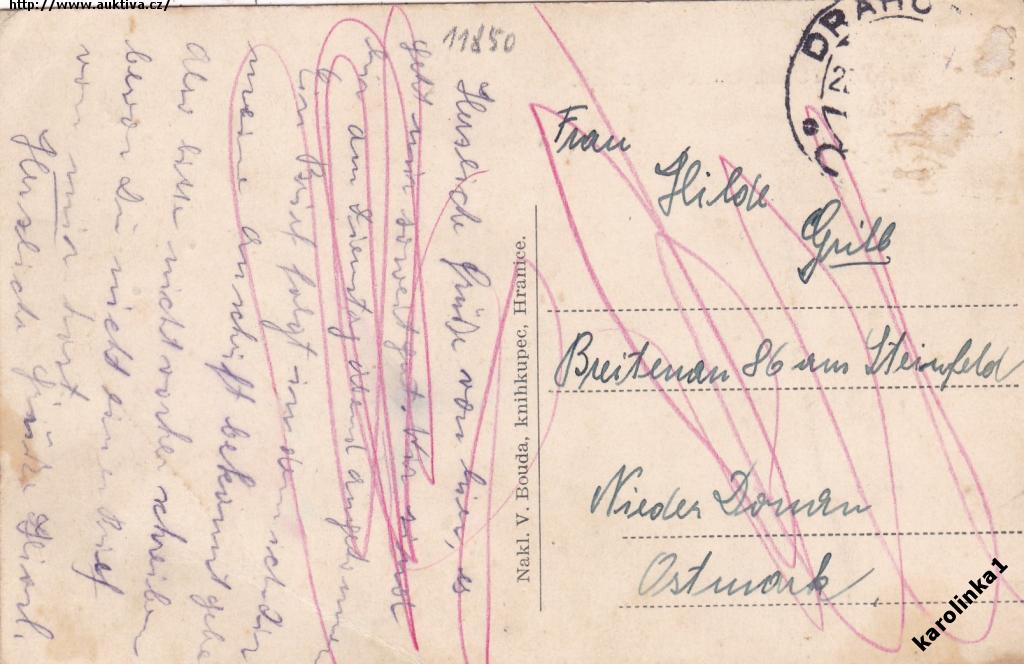 http://www.auktiva.cz/
11850
DRAHO
Herzliche Grüße von hier, es
geht mir soweit gut. Wir sind
hier am Dienstag abend angekommen
Ein Brief folgt in dem ich dir
meine Anschrift bekannt gebe
Also bitte nicht vorher schreiben
bevor Du nicht einen Brief
von mir hast.
Herzliche Grüße
Nakl. V. Bouda, knihkupec, Hranice.
Frau
Hilde
Grill
Breitenau 86 am Steinfeld
Nieder Donau
Ostmark
karolinka1